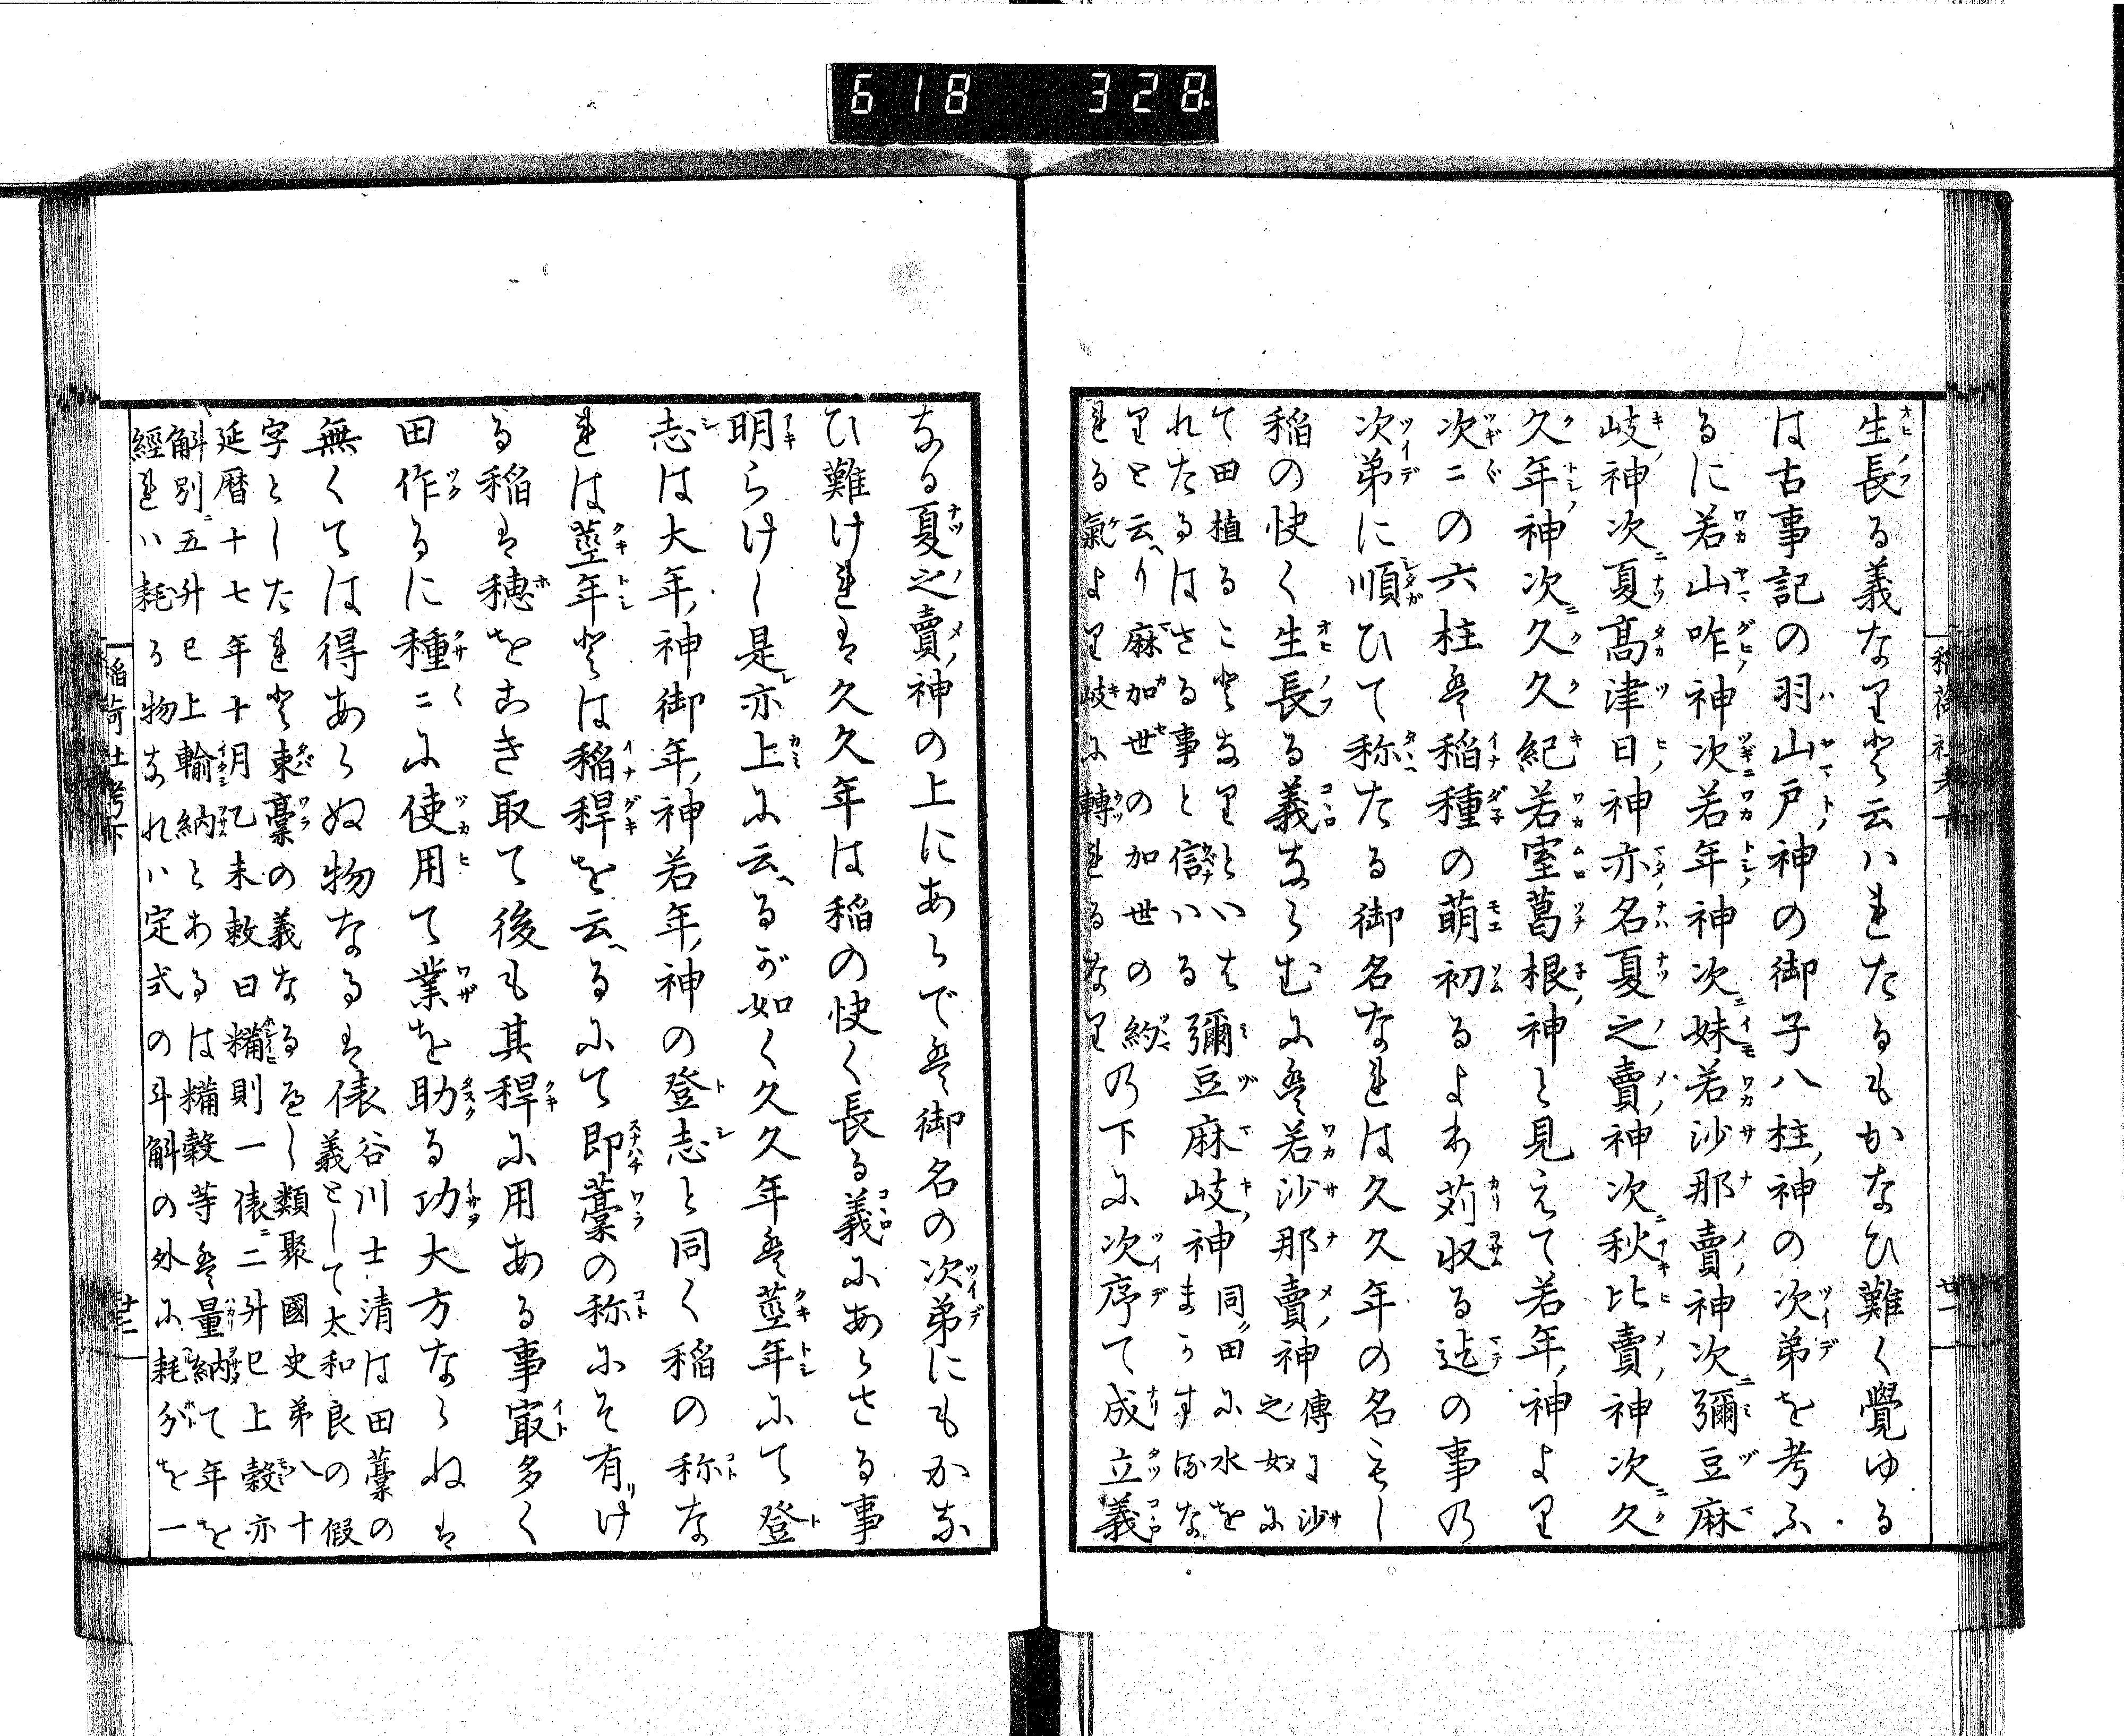 618 328
稲荷社考下
廿一
生長る義なりと云ハれたるもかなひ難く覺ゆる
は古事記の羽山戸神の御子八柱神の次第を考ふ
るに若山咋神次若年神次妹若沙那賣神次彌豆麻
岐神次夏髙津日神亦名夏之賣神次秋比賣神次久
久年神次久久紀若室葛根神と見えて若年神より
次〻の六柱は稲種の萌初るよりか苅収る迄の事の
次第に順ひて称たる御名なれは久久年の名もし
稲の快く生長る義ならむには若沙那賣神
傳に沙
之奴に
て田植ることなりといはれたるはさる事と信ハる
彌豆麻岐神
同田に水を
まかするな
りと云り麻加世の加世の約れる氣より岐に轉れるなり
の下に次序て成立義
なる夏之賣神の上にあらでは御名の次第にもかな
ひ難けれは久久年は稲の快く長る義にあらさる事
明らけし是亦上に云るが如く久久年は莖年にて登
志は大年神御年神若年神の登志と同く稲の称な
れは莖年とは稲稈を云るにて即藁の称にそ有け
る稲は穂をこき取て後も其稈に用ある事最多く
田作るに種〻に使用て業を助る功大方ならねは
無くては得あらぬ物なるは
俵谷川士清は田藁の
義として太和良の假
字としたれと束藁の義なるへし類聚國史弟八十
延暦十七年十月乙未敕曰糒則一俵二升已上穀亦
斛別五升已上輸納とあるは糒穀等は量納て年を
經れハ耗る物なれハ定式の斗斛の外に耗分を一
稲荷社考下
廿二